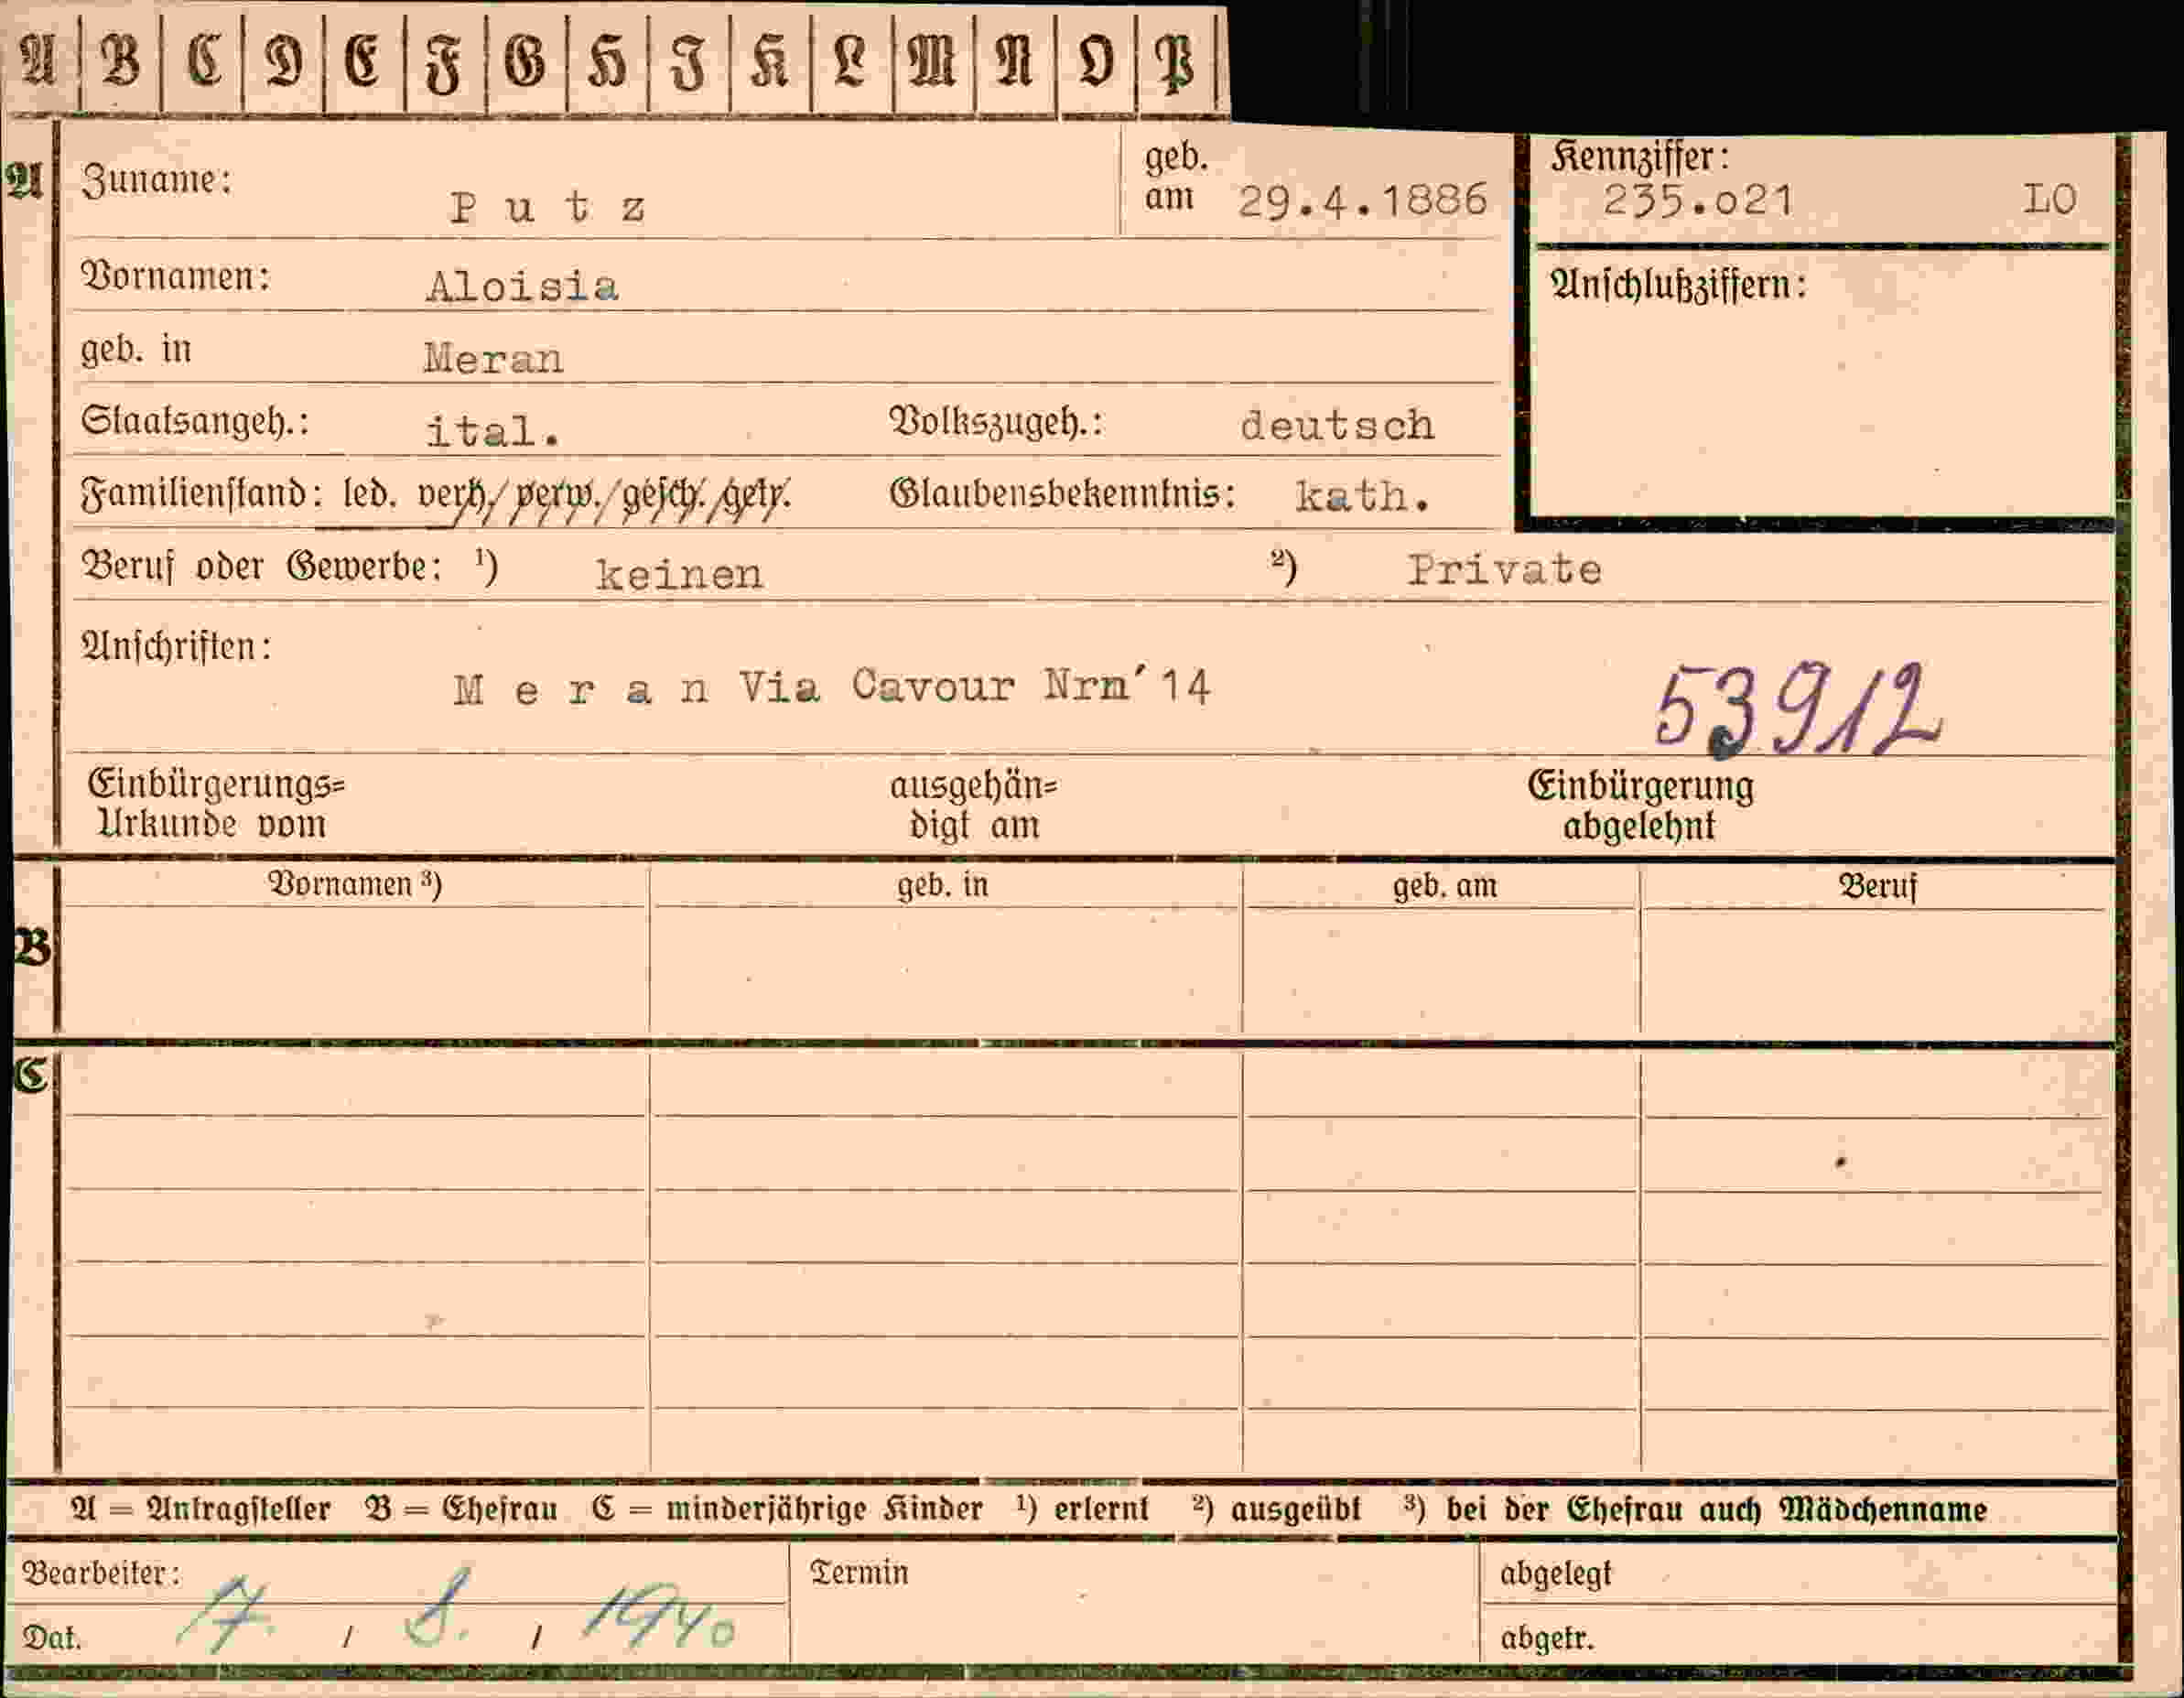 A B C D E F G H I K L M N O P
A Zuname: Putz geb. am 29.4.1886 Kennziffer: 235.o21 LO
Vornamen: Aloisia Anschlußziffern:
geb. in Meran
Staatsangeh.: ital. Volkszugeh.: deutsch
Familienstand: led. verh./verw./gesch./getr. Glaubensbekenntnis: kath.
Beruf oder Gewerbe: ¹) keinen ²) Private
Anschriften:
Meran Via Cavour Nrm´14 53912
Einbürgerungs= ausgehän= Einbürgerung
Urkunde vom digt am abgelehnt
Vornamen ³) geb. in geb. am Beruf
B
C
A = Antragsteller B = Ehefrau C = minderjährige Kinder ¹) erlernt ²) ausgeübt ³) bei der Ehefrau auch Mädchenname
Bearbeiter: Termin abgelegt
Dat. 17. / 8. / 1940 abgetr.